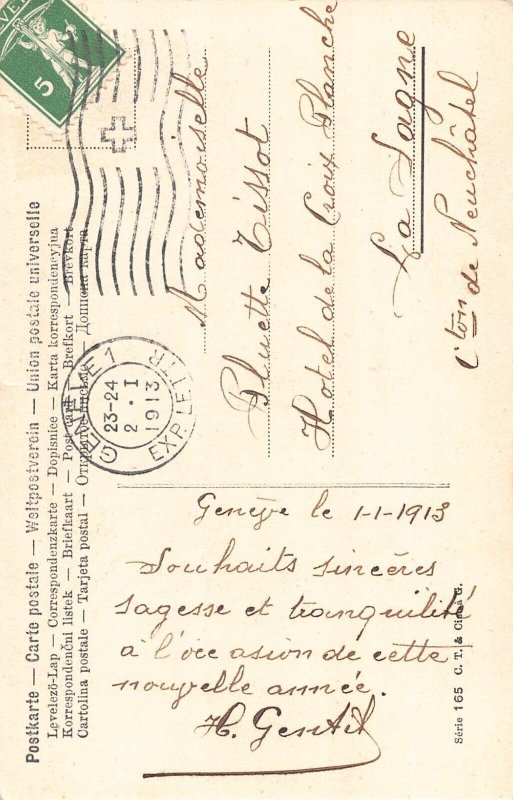 Postkarte — Carte postale — Weltpostverein — Union postale universelle
Levelező-Lap — Correspondenzkarte — Dopisnice — Karta korrespondencyjua
Korrespondenční listek — Briefkaart — Post card — Brefkort — Brevkort
Cartolina postale — Tarjeta postal — Открытое письмо — Дописна карта
HELVETIA
5
GENÈVE 1
23-24
2. I
1913
EXP. LETTR.
Mademoiselle
Bluette Tissot
Hotel de la Croix Blanche
La Sagne
Cton de Neuchâtel
Genève le 1-1-1913
Souhaits sincères
sagesse et tranquilité
à l'occasion de cette
nouvelle année.
H. Gentil
Série 165 C. T. & Cie à G.